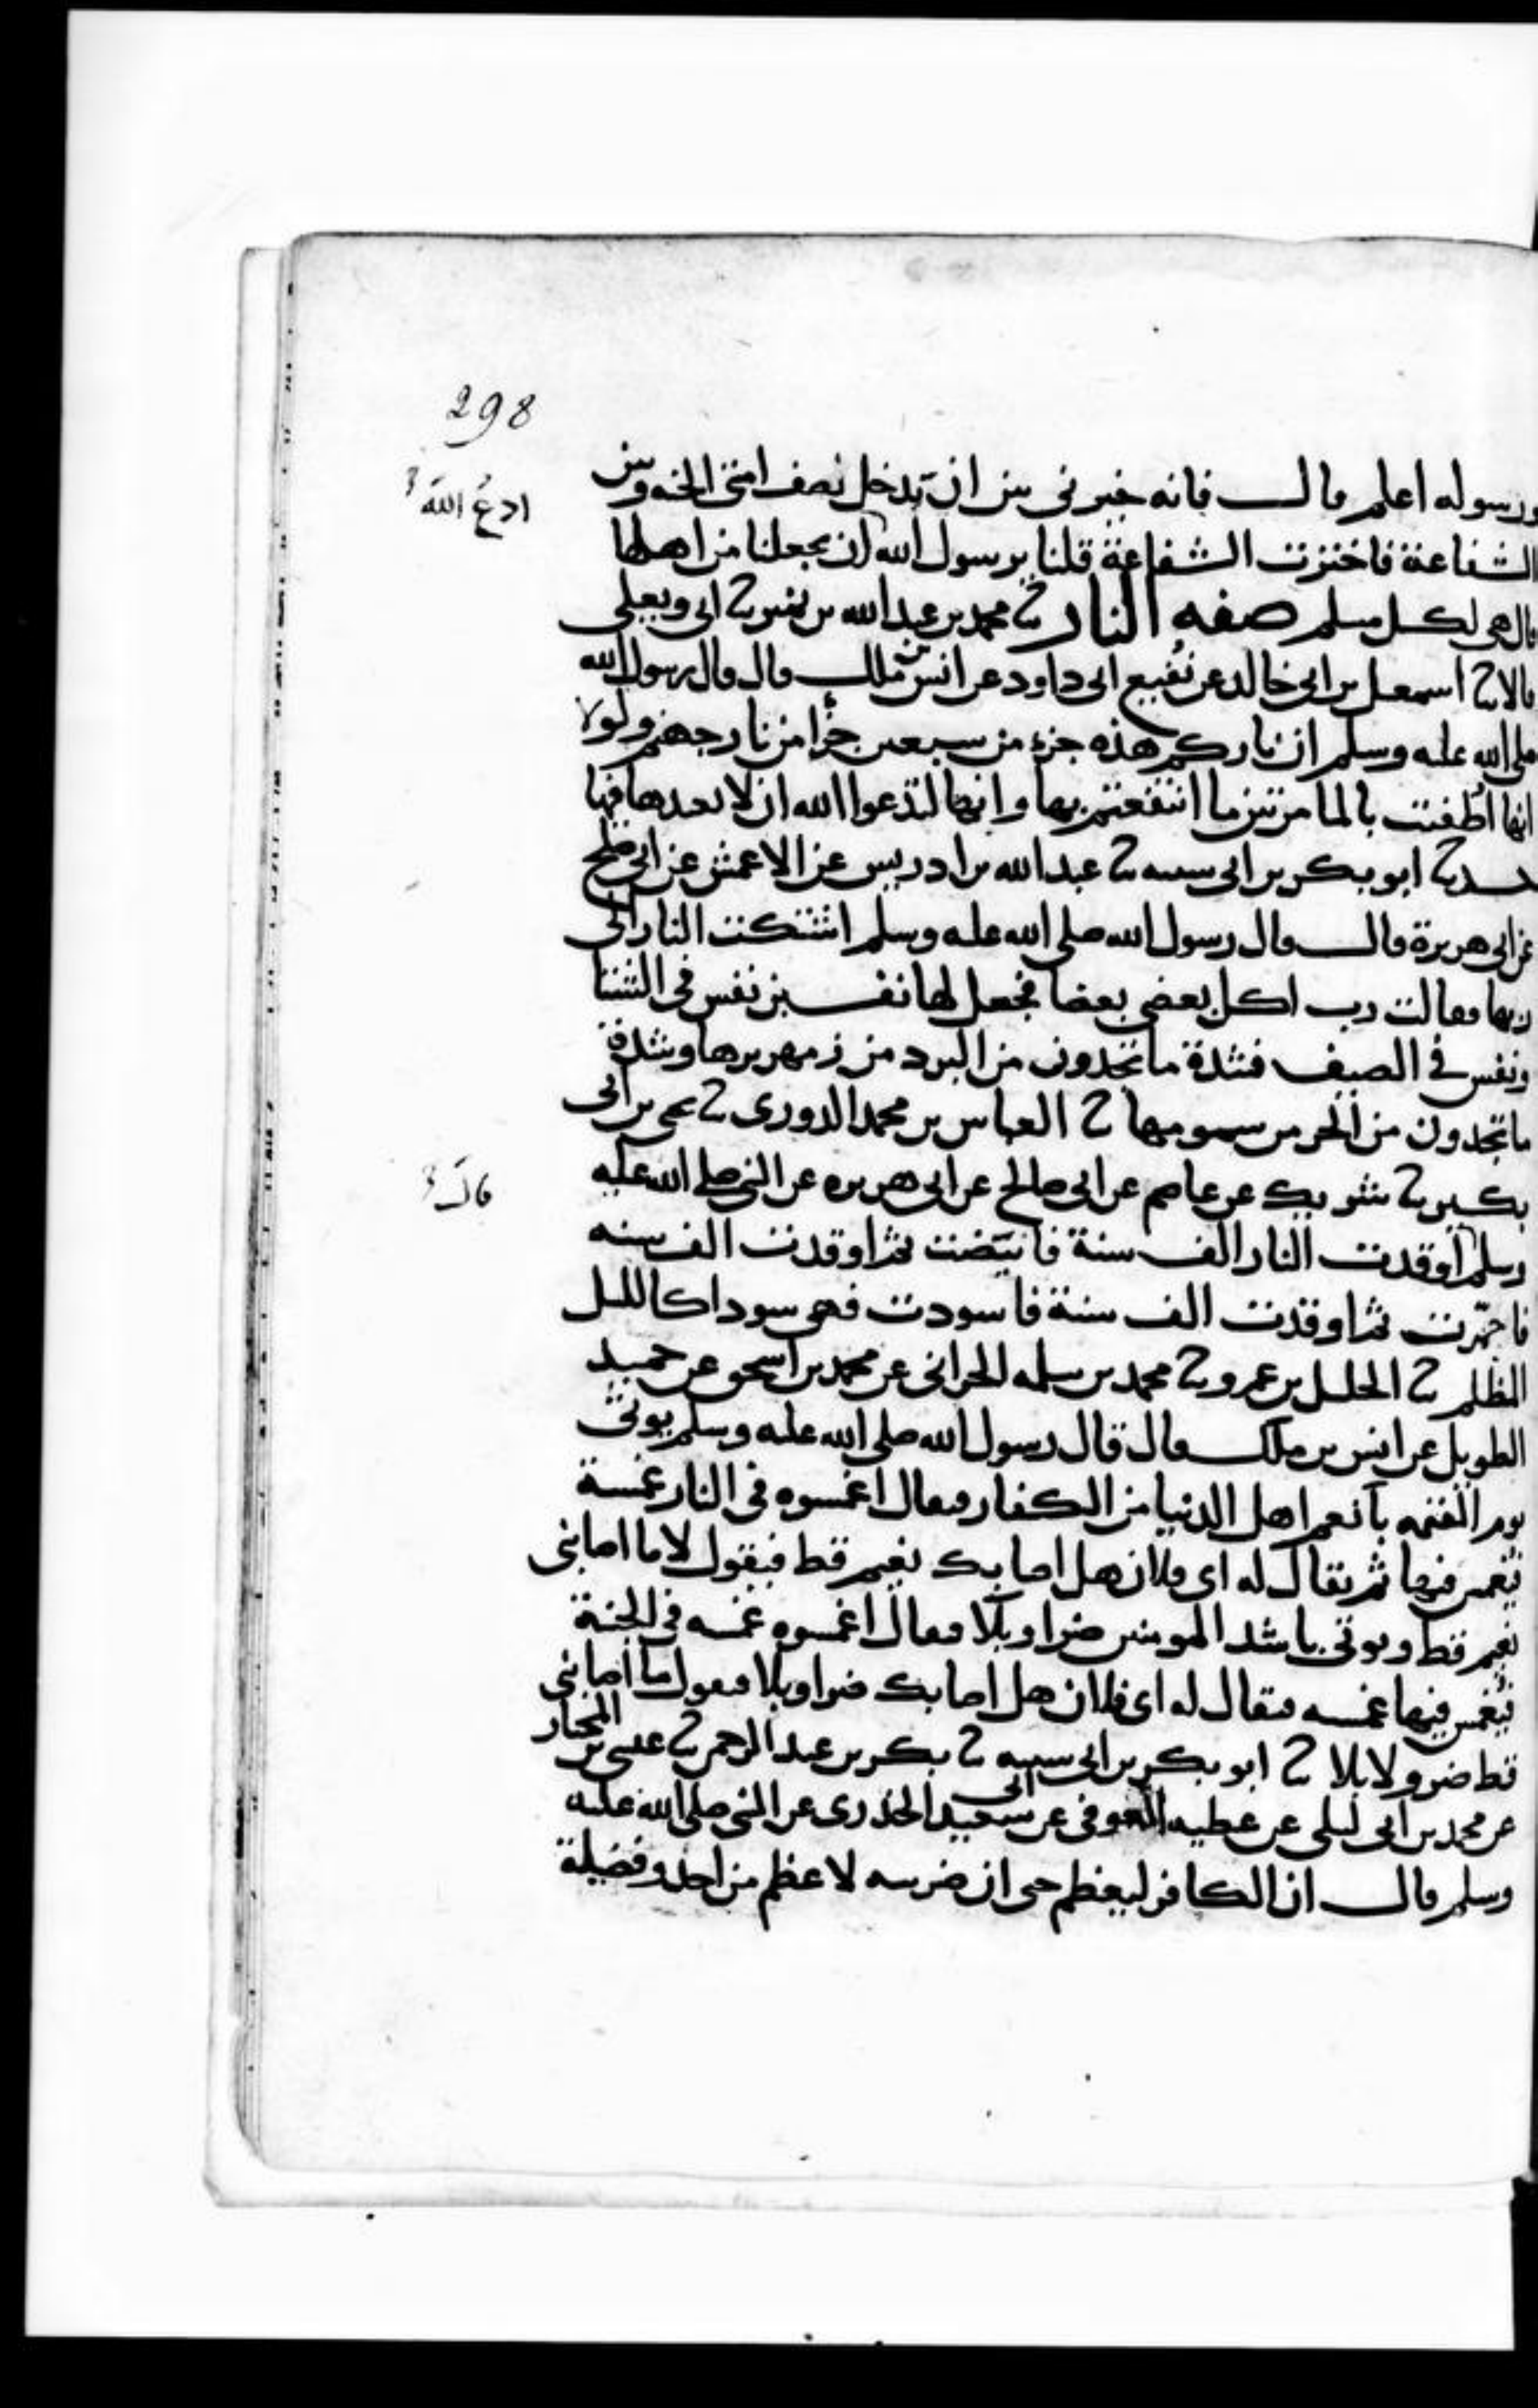 298
ورسوله اعلم قال فانه خيرني بين ان يدخل نصف امتي الجنة وبين
الشفاعة فاخترت الشفاعة قلنا يرسول الله ان يجعلنا من اهلها
ادعُ اللهَ
قال هي لكل مسلم صفه النار ثنا محمد بن عبد الله بن نمير ثنا ابي ويعلى
قالا ثنا اسمعيل بن ابي خالد عن نُفيع ابي داود عن انس بن ملك قال قال رسول الله
صلى الله عليه وسلم ان ناركم هذه جزء من سبعين جزءا من نار جهنم ولولا
انها اُطفئت بالما مرتين ما انتفعتم بها وانها لتدعوا الله ان لا يعيدها فيها
حدثنا ابو بكر بن ابي شيبه ثنا عبد الله بن ادريس عن الاعمش عن ابي صلح
عن ابي هريرة قال قال رسول الله صلى الله عليه وسلم اشتكت النار الى
ربها فقالت رب اكل بعضي بعضا فجعل لها نفسين نفس في الشتا
ونفس في الصيف فشدة ما تجدون من البرد من زمهريرها وشدة
ما تجدون من الحر من سمومها ثنا العباس بن محمد الدوري ثنا يحيى بن ابي
بكير ثنا شريك عن عاصم عن ابي صالح عن ابي هريره عن النبي صلى الله عليه
قال
وسلم اوقدت النار الف سنة فابيَضت ثم اوقدت الف سنه
فاحمّرت ثم اوقدت الف سنة فاسودت فهي سودا كالليل
المظلم ثنا الخليل بن عمرو ثنا محمد بن سلمه الحراني عن محمد بن اسحق عن حميد
الطويل عن انس بن ملك قال قال رسول الله صلى الله عليه وسلم يوتى
يوم القيمه بانعم اهل الدنيا من الكفار فيقال اغمسوه في النار غمسة
فيُغمس فيها ثم يقال له اي فلان هل اصابك نعيم قط فيقول لا ما اصابني
نعيم قط ويوتى باشد المومنين ضرا وبلا فيقال اغمسوه غمسه في الجنة
فيُغمس فيها غمسه فيقال له اي فلان هل اصابك ضر او بلا فيقول ما اصابني
قط ضر ولا بلا ثنا ابو بكر بن ابي شيبه ثنا بكر بن عبد الرحمن ثنا عيسى بن المختار
عن محمد بن ابي ليلى عن عطيه العوفي عن ابي سعيد الخدري عن النبي صلى الله عليه
وسلم قال ان الكافر ليعظم حتى ان ضرسه لاعظم من احد وفضيلة